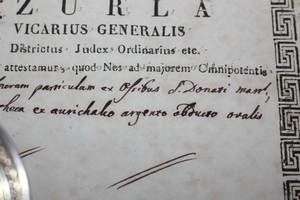 ZURLA
VICARIUS GENERALIS
Districtus Judex Ordinarius etc.
attestamur, quod Nos ad majorem Omnipotentis
particulam ex Ossibus S. Donati mart.
theca ex aurichalco argento obducto ovalis